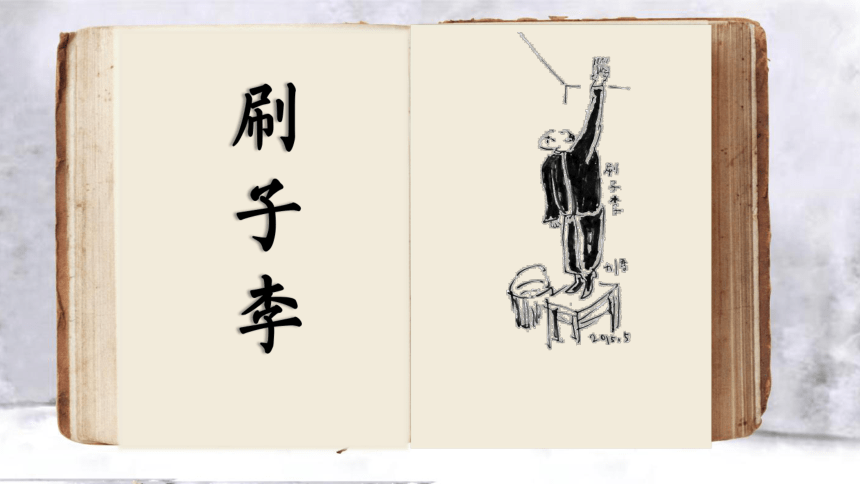 刷子李
刷子李
2015.5